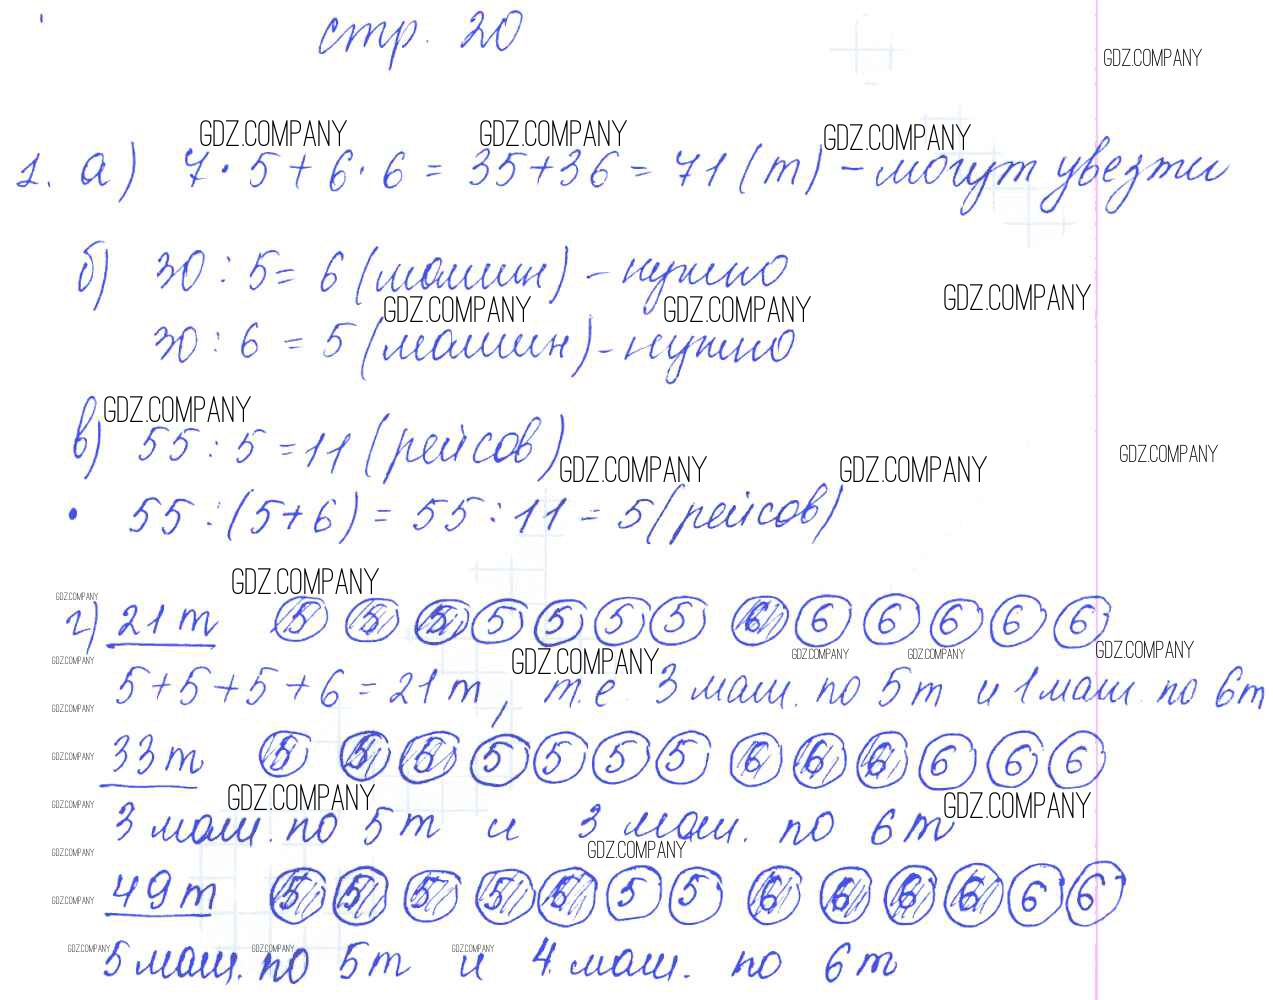 стр. 20
GDZ.COMPANY
GDZ.COMPANY GDZ.COMPANY GDZ.COMPANY
1. а) 7·5+6·6=35+36=71(т)-могут увезти
б) 30:5=6(машин)-нужно
GDZ.COMPANY GDZ.COMPANY GDZ.COMPANY
30:6=5(машин)-нужно
GDZ.COMPANY
в) 55:5=11(рейсов)
GDZ.COMPANY GDZ.COMPANY GDZ.COMPANY
• 55:(5+6)=55:11=5(рейсов)
GDZ.COMPANY
GDZ.COMPANY
г) 21 т 5 5 5 5 5 5 5 6 6 6 6 6 6
GDZ.COMPANY GDZ.COMPANY GDZ.COMPANY GDZ.COMPANY GDZ.COMPANY
5+5+5+6=21т, т.е 3 маш. по 5т и 1 маш. по 6т
GDZ.COMPANY
GDZ.COMPANY 33т 5 5 5 5 5 5 5 6 6 6 6 6 6
GDZ.COMPANY GDZ.COMPANY GDZ.COMPANY
3 маш. по 5т и 3 маш. по 6т
GDZ.COMPANY GDZ.COMPANY
GDZ.COMPANY 49т 5 5 5 5 5 5 5 6 6 6 6 6 6
GDZ.COMPANY GDZ.COMPANY GDZ.COMPANY
5 маш. по 5т и 4 маш. по 6т